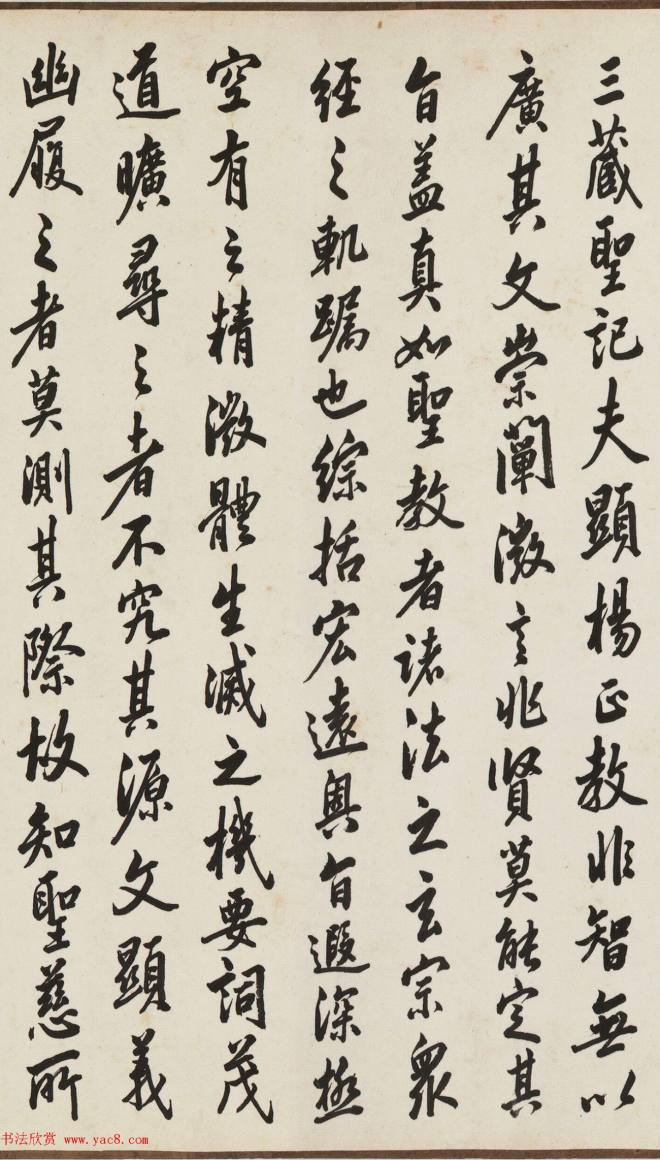 三蔵聖記夫顯楊正教非智無以
廣其文崇闡微言非賢莫能定其
旨盖真如聖教者諸法之玄宗衆
經之軌躅也綜括宏遠奧旨遐深極
空有之精微體生滅之機要詞茂
道曠尋之者不究其源文顯義
幽履之者莫測其際故知聖慈所
书法欣赏 www.yac8.com